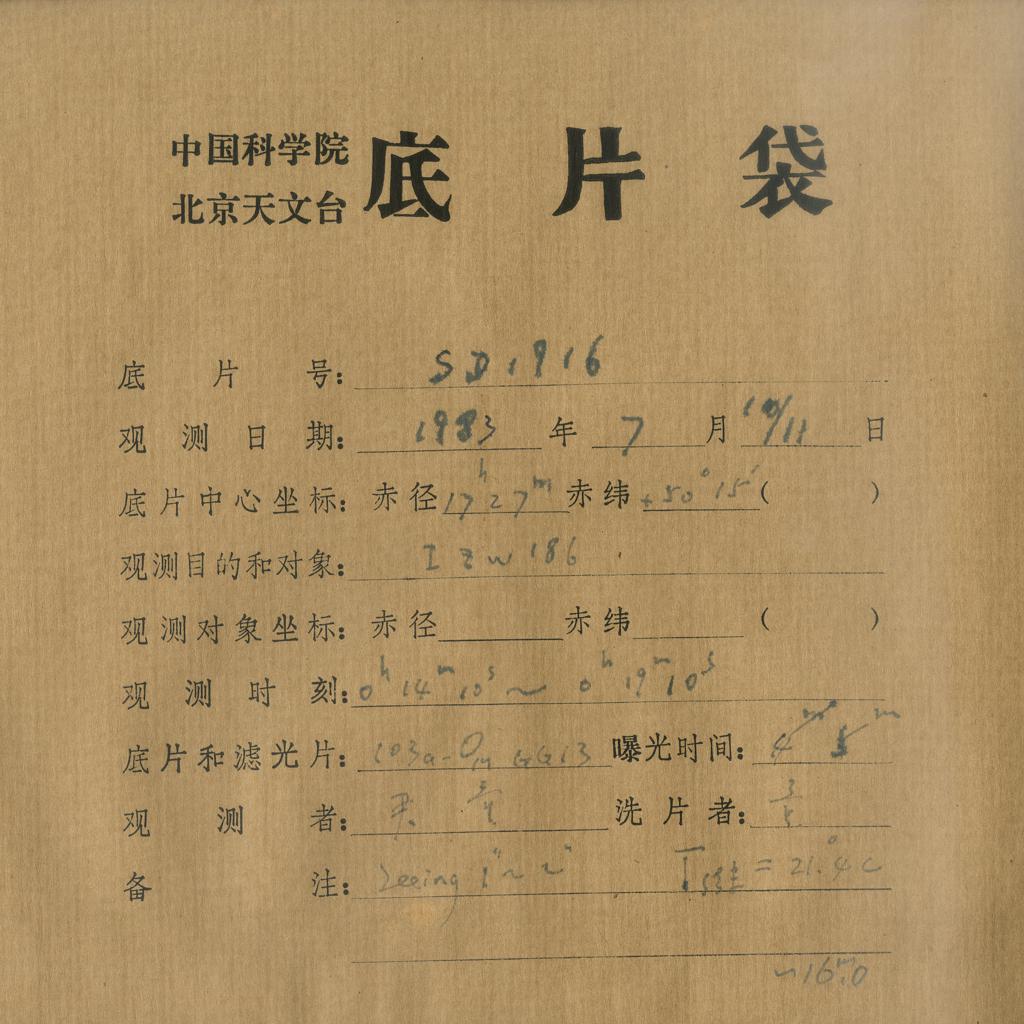 中国科学院
北京天文台
底片袋
底片号: SD1916
观测日期: 1983 年 7 月 10/11 日
底片中心坐标: 赤径 17h27m 赤纬 +50°15′ ( )
观测目的和对象: I Zw 186
观测对象坐标: 赤径 赤纬 ( )
观测时刻: 0h14m10s ~ 0h19m10s
底片和滤光片: 103a-O, GG13 曝光时间: 4m 5m
观测者: 洗片者:
备注: Seeing 1″~2″ = 21.°4C
~16m.0